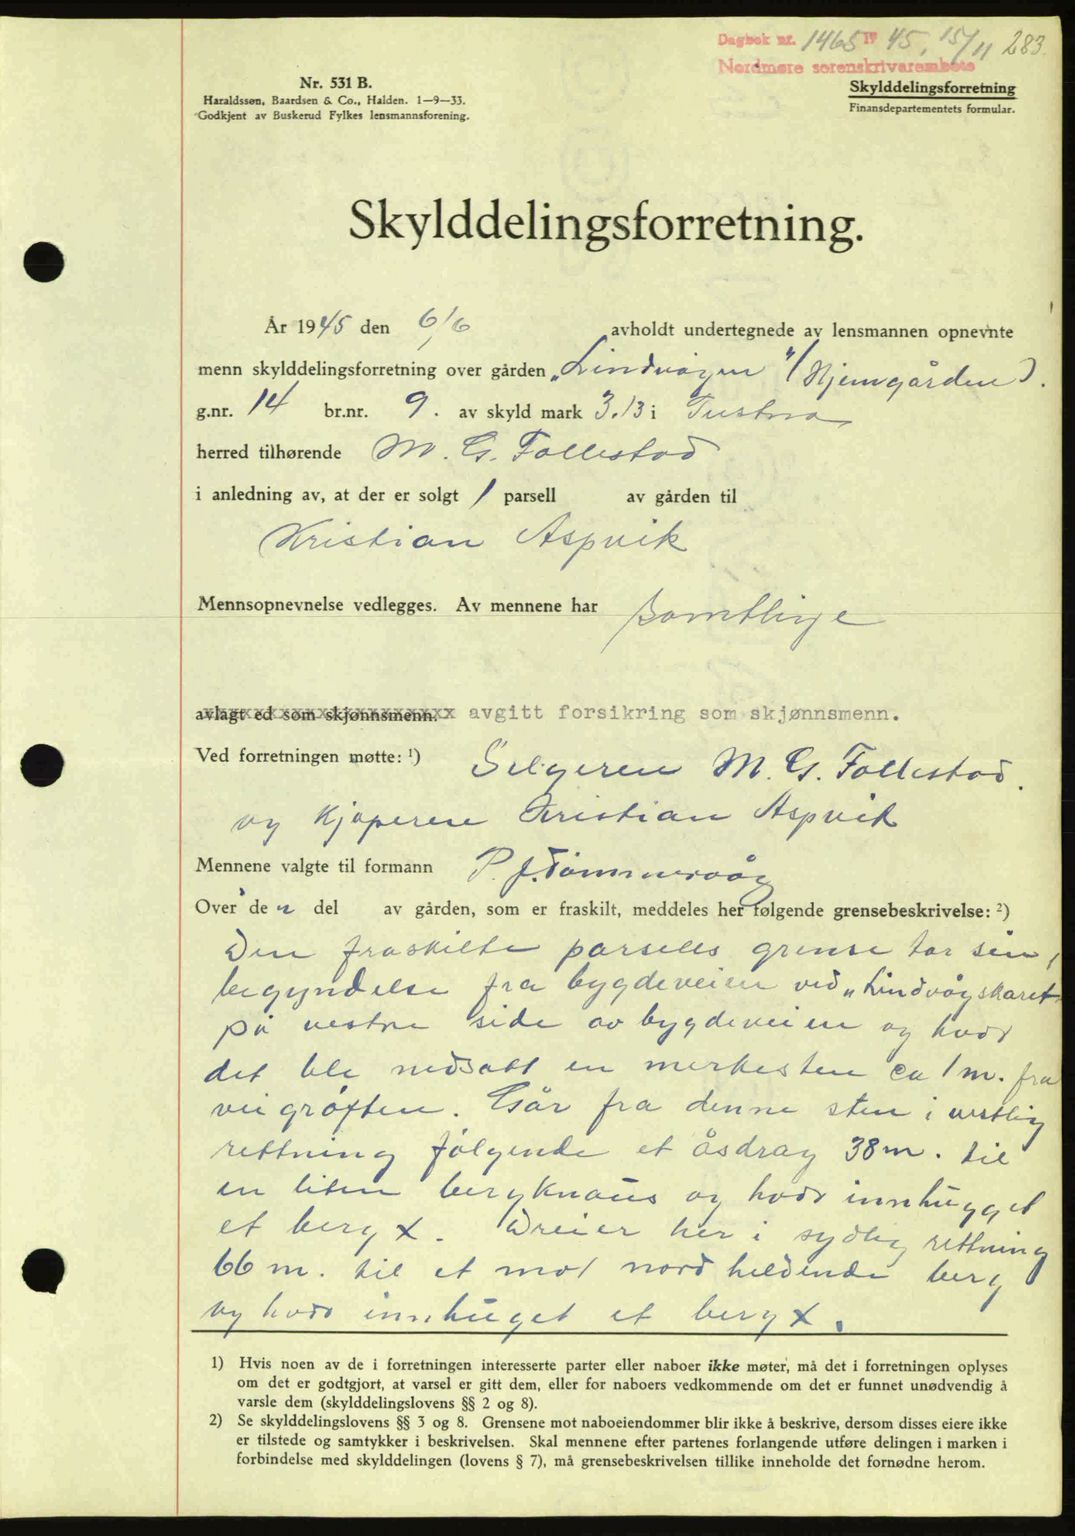 Dagbok nr. 1465 19 45, 15/11 283.
Nordmøre sorenskrivarembete
Nr. 531 B.
Haraldssen, Baardsen & Co., Halden. 1—9—33.
Godkjent av Buskerud Fylkes lensmannsforening.
Skylddelingsforretning
Finansdepartementets formular.
Skylddelingsforretning.
År 1945 den 6/6 avholdt undertegnede av lensmannen opnevnte
menn skylddelingsforretning over gården „Lindvågen" (Hjemgården).
g.nr. 14 br.nr. 9. av skyld mark 3.13 i Tustna
herred tilhørende M. G. Follestad
i anledning av, at der er solgt 1 parsell av gården til
Kristian Aspvik
Mennsopnevnelse vedlegges. Av mennene har samtlige
avlagt ed som skjønnsmenn. avgitt forsikring som skjønnsmenn.
Ved forretningen møtte: ¹) Selgeren M. G. Follestad.
og kjøperen Kristian Aspvik
Mennene valgte til formann P. J. Tømmervåg
Over den del av gården, som er fraskilt, meddeles her følgende grensebeskrivelse: ²)
Den fraskilte parsells grense tar sin
begyndelse fra bygdeveien ved „Lindvågskaret"
på vestre side av bygdeveien og hvor
det ble nedsatt en merkesten ca 1 m. fra
veigrøften. Går fra denne sten i vestlig
rettning følgende et åsdrag 38 m. til
en liten bergknaus og hvor innhugget
et berg x. Dreier her i sydlig rettning
66 m. til et mot nord heldende berg
og hvor innhuget et berg x.
1) Hvis noen av de i forretningen interesserte parter eller naboer ikke møter, må det i forretningen oplyses
om det er godtgjort, at varsel er gitt dem, eller for naboers vedkommende om det er funnet unødvendig å
varsle dem (skylddelingslovens §§ 2 og 8).
2) Se skylddelingslovens §§ 3 og 8. Grensene mot naboeiendommer blir ikke å beskrive, dersom disses eiere ikke
er tilstede og samtykker i beskrivelsen. Skal mennene efter partenes forlangende utføre delingen i marken i
forbindelse med skylddelingen (lovens § 7), må grensebeskrivelsen tillike inneholde det fornødne herom.